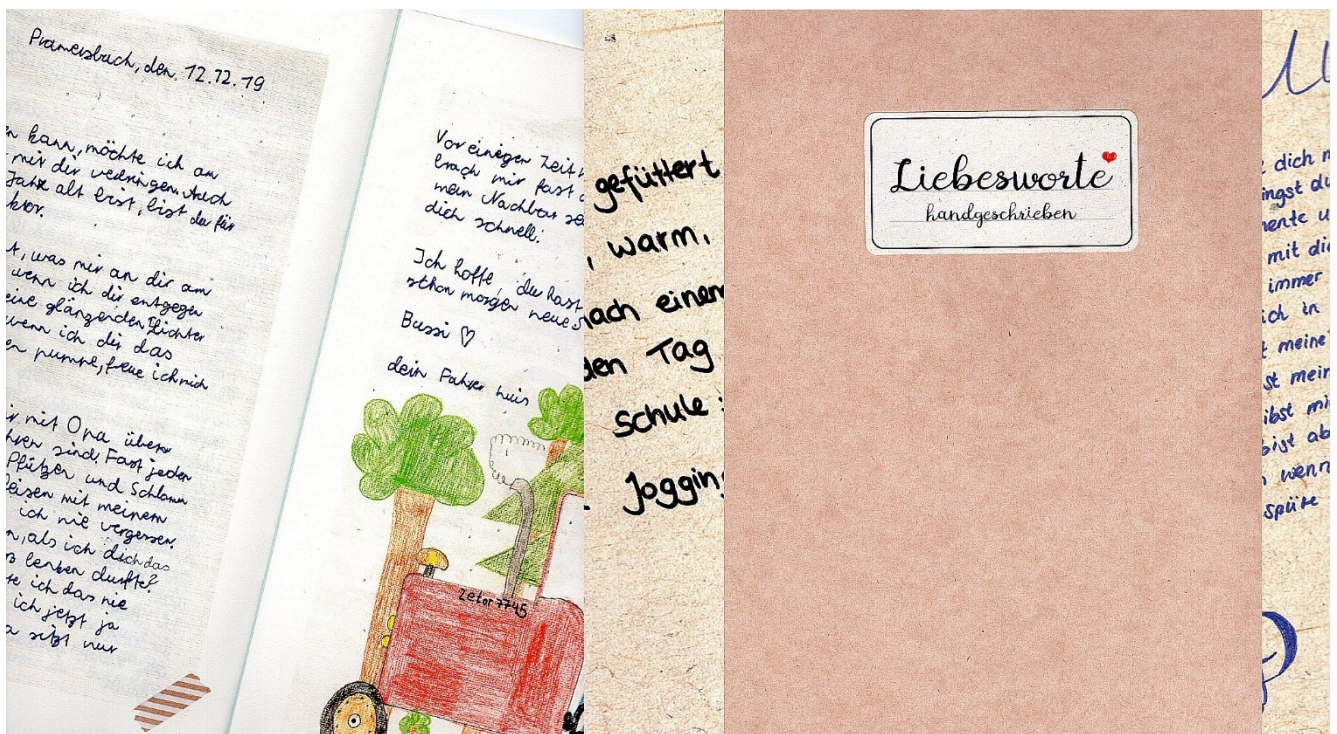 Pramersbach, den 12.12.19
kann, möchte ich an
mir dir verdringen. Auch
Jahr alt bist, bist du für
ktor.
was mir an dir am
wenn ich dir entgegen
eine glänzenden Lichter
wenn ich dir das
pumpe, freue ich mich
mit Opa übers
sind. Fast jeden
Pfützen und Schlamm
mit meinem
ich nie vergessen.
als ich dich das
lenken durfte?
ich das nie
ich jetzt ja
sitzt nur
Vor einigen Zeit
brach mir fast
mein Nachbar
dich schnell!
Ich hoffe, du hast
schon morgen neue
Bussi ♡
dein Fahrer
Zetor 7745
gefüttert
, warm,
nach einem
den Tag
schule
Jogging
Liebesworte
handgeschrieben
dich
ingst du
mente u
mit dir
immer
ich in
meine
st mein
ibst mi
bist ab
wenn
spüre